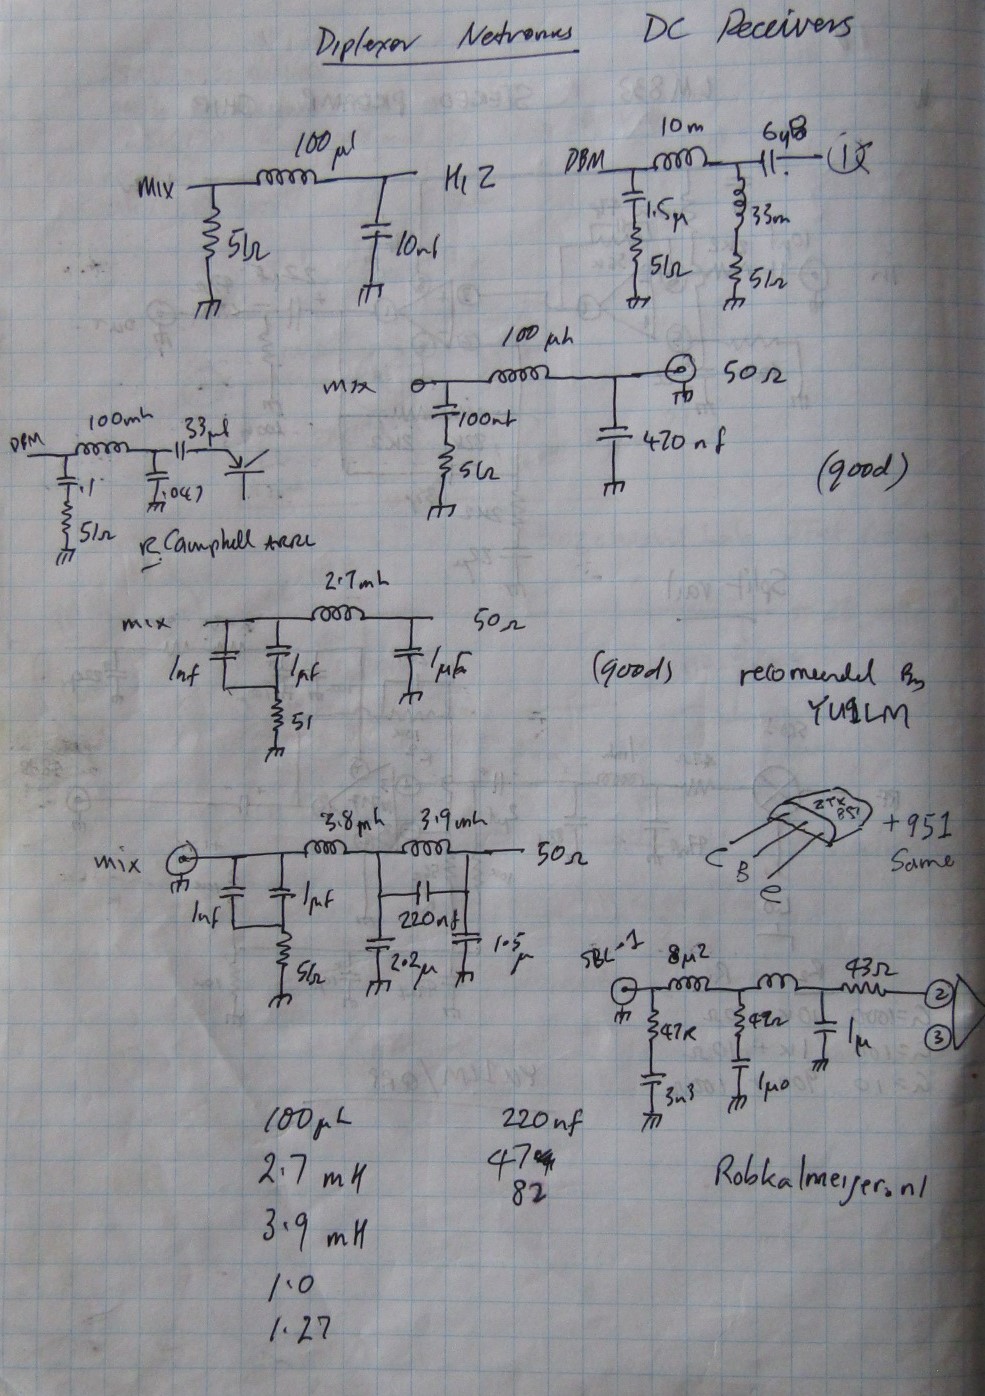 Diplexor Networks DC Receivers
100 µl
mix
Hi Z
51Ω
10nf
10m
6µ8
DBM
1.5µ
33m
51Ω
51Ω
100 µh
mix
50Ω
100nf
470 nf
51Ω
(good)
100mh
33µf
DBM
.1
.047
51Ω
R Camphell ARRL
2.7mh
mix
50Ω
1nf
1µf
1µf
51
(good) recomended By
YU1LM
3.8µh
3.9mh
mix
50Ω
1nf
1µf
220nf
51Ω
2.2µ
1.5µ
ZTX
851
+951
Same
C
B
e
SBL-1
8µ2
43Ω
47R
42Ω
1µ
2
3
3n3
1µ0
100µh
2.7 mH
3.9 mH
1.0
1.27
220nf
47
82
Robkalmeijer.nl